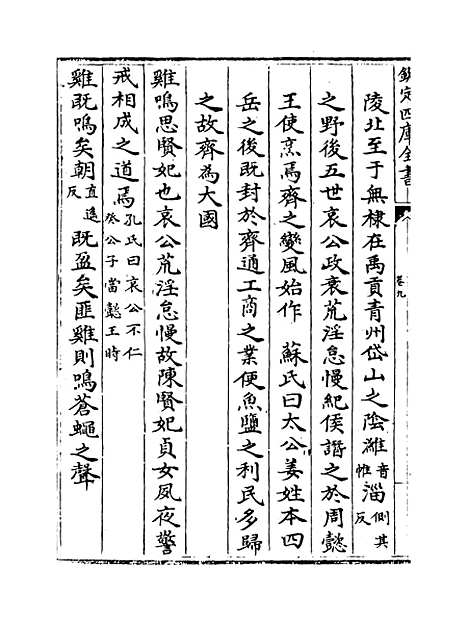 欽定四庫全書
卷九
陵北至于無棣在禹貢青州岱山之陰濰音惟淄側其反
之野後五世哀公政衰荒淫怠慢紀侯譖之於周懿
王使烹焉齊之變風始作　蘇氏曰太公姜姓本四
岳之後既封於齊通工商之業便魚鹽之利民多歸
之故齊為大國
雞鳴思賢妃也哀公荒淫怠慢故陳賢妃貞女夙夜警
戒相成之道焉孔氏曰哀公不仁癸公子當懿王時
雞既鳴矣朝直遙反既盈矣匪雞則鳴蒼蠅之聲